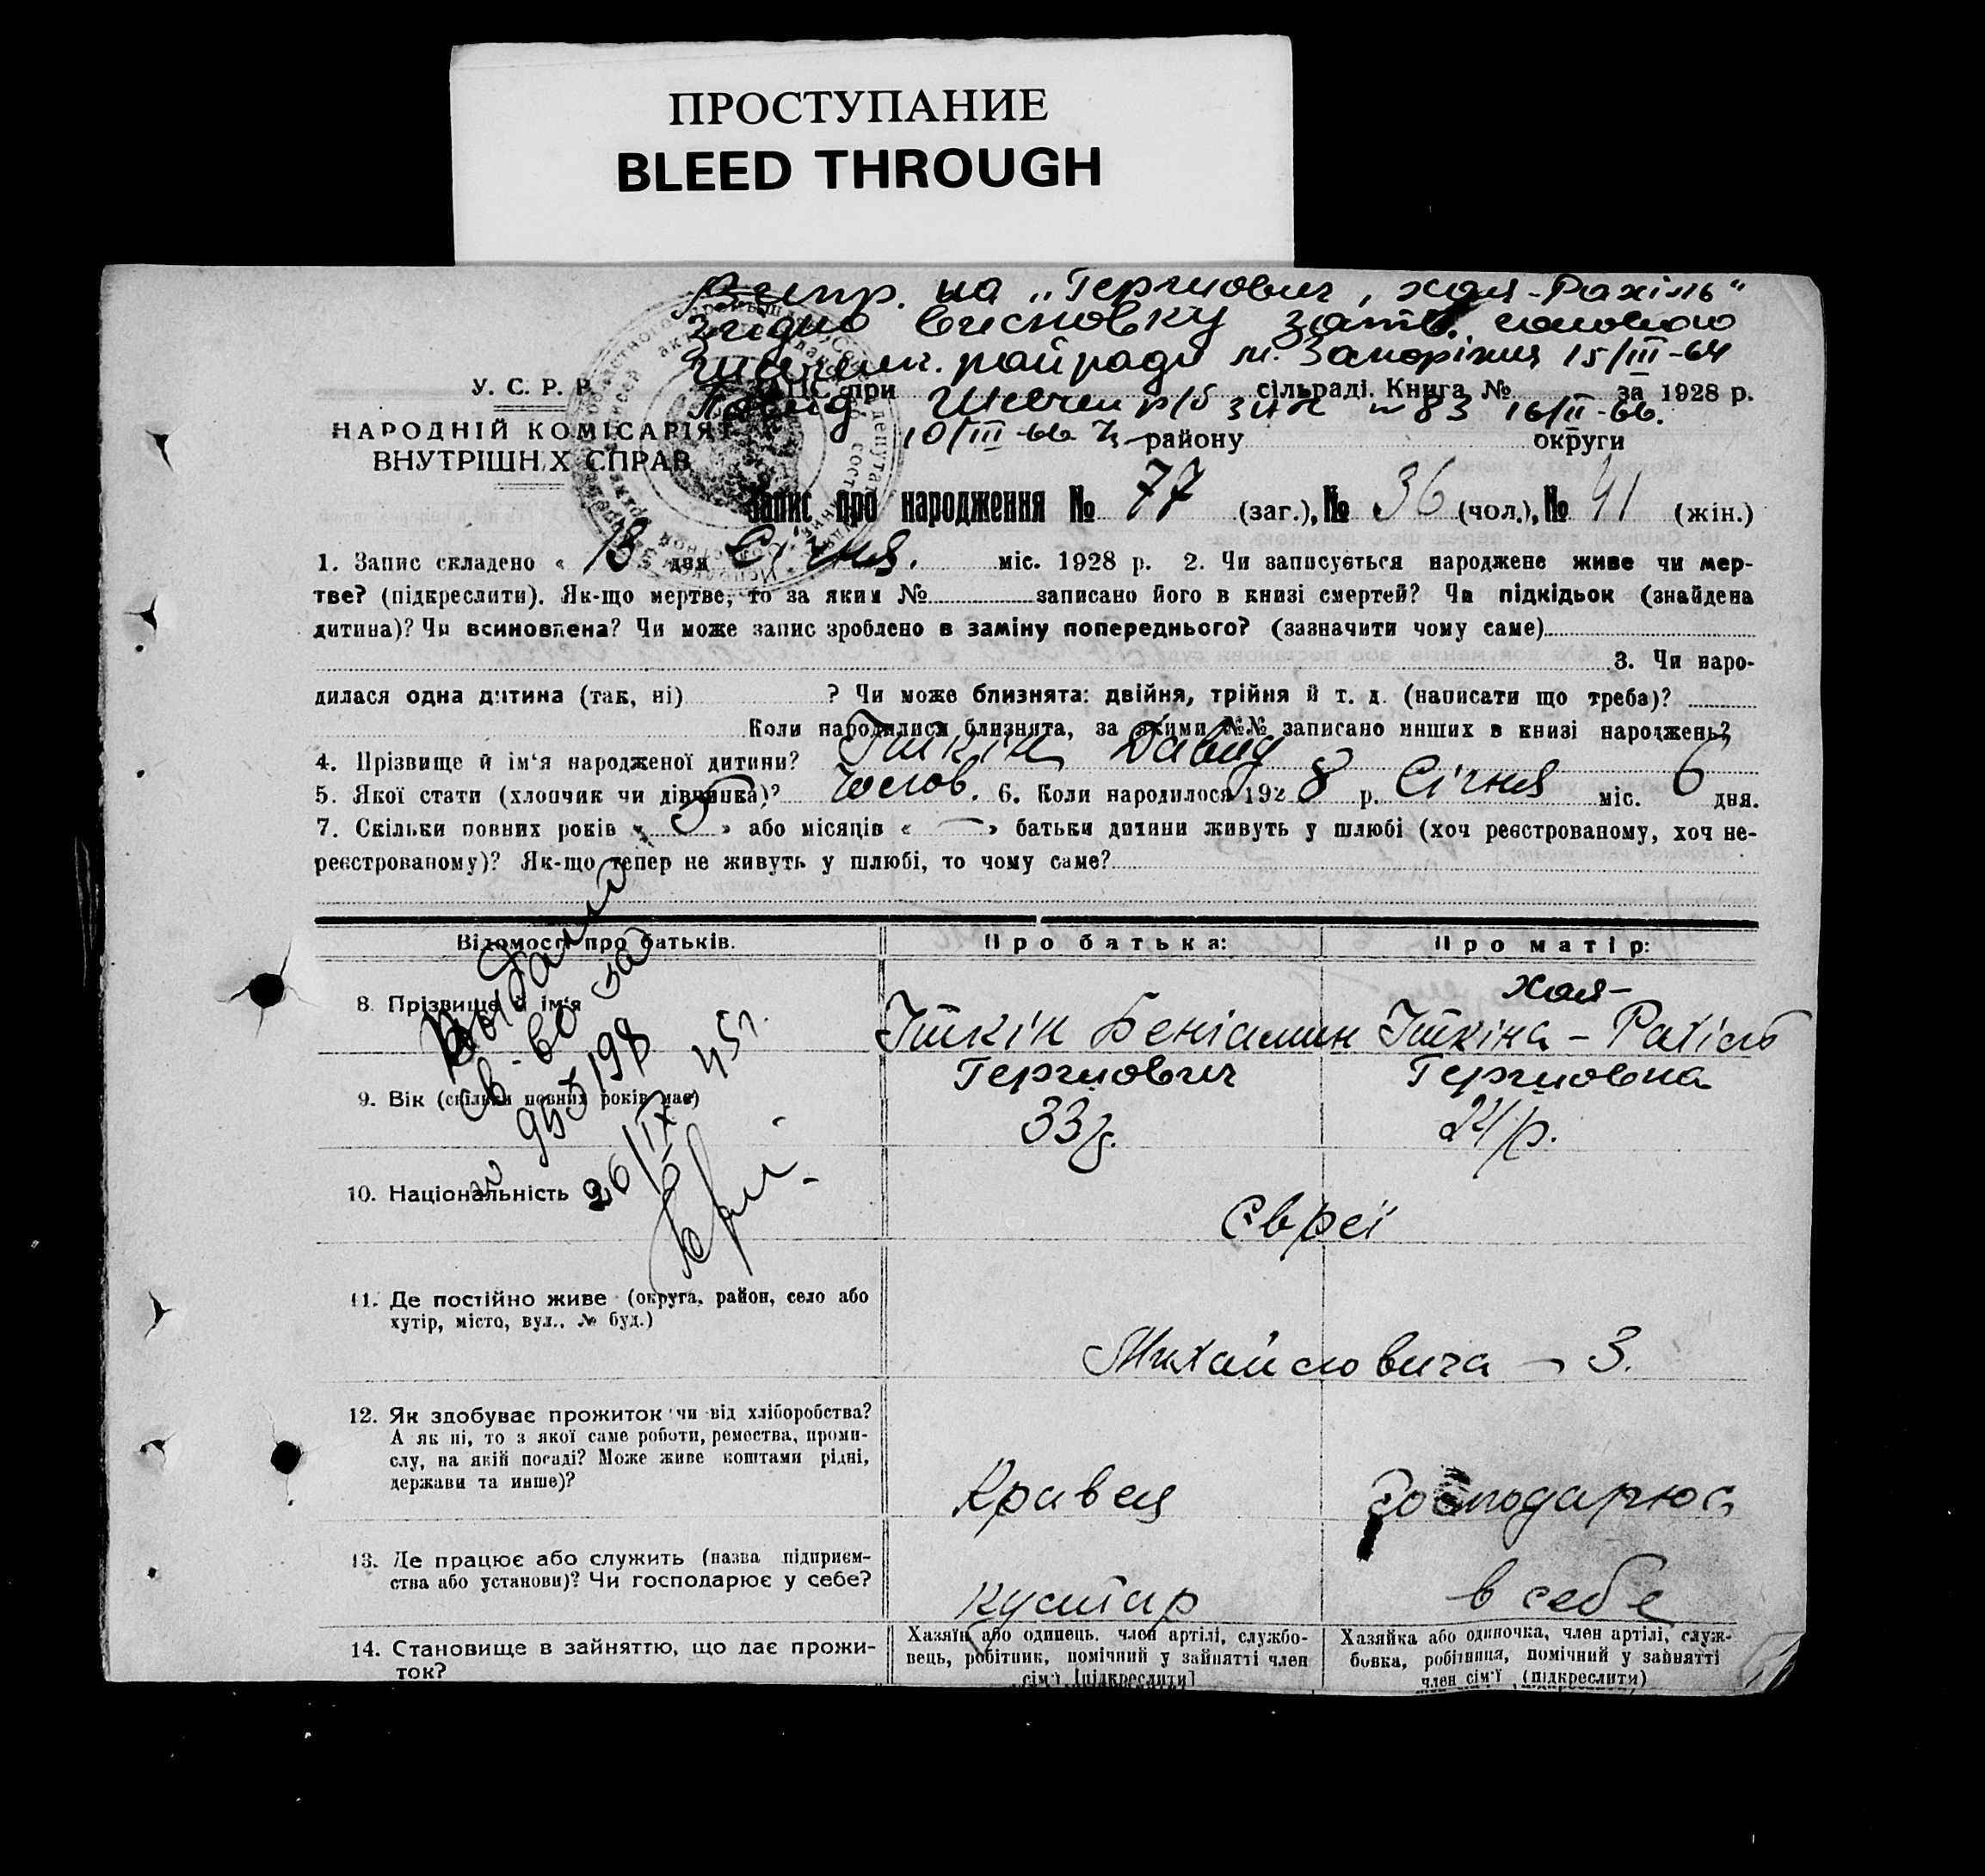 ПРОСТУПАНИЕ
BLEED THROUGH
Випр. на „Герцмович, Хая-Рахіль“
Згідно висновку затв. головою
райради м. Запоріжжя 15/III-64
У. С. Р. Р. ЗАПС при сільраді. Книга № за 1928 р.
Повід Шевчен р/б ЗАГС № 83 16/II-66.
НАРОДНІЙ КОМІСАРІЯТ
10/III-66 району округи
ВНУТРІШНІХ СПРАВ
Запис про народження № 77 (заг.), № 36 (чол.), № 41 (жін.)
1. Запис складено « 13 » дня Січня. міс. 1928 р. 2. Чи записується народжене живе чи мер-
тве? (підкреслити). Як-що мертве, то за яким № записано його в книзі смертей? Чи підкідьок (знайдена
дитина)? Чи всиновлена? Чи може запис зроблено в заміну попереднього? (зазначити чому саме)
3. Чи наро-
дилася одна дитина (так, ні) ? Чи може близнята: двійня, трійня й т. д. (написати що треба)?
Коли народилися близнята, за якими №№ записано инших в книзі народжень?
4. Прізвище й ім'я народженої дитини? Іткін Давид
5. Якої стати (хлопчик чи дівчинка)? Чолов. 6. Коли народилося 1928 р. Січня міс. 6 дня.
7. Скільки повних років « 5 » або місяців « — » батьки дитини живуть у шлюбі (хоч реєстрованому, хоч не-
реєстрованому)? Як-що тепер не живуть у шлюбі, то чому саме?
Відомості про батьків. Про батька: Про матір:
Хая-
8. Прізвище й ім'я Іткін Беніамин Іткіна - Рахіль
Герцмович Герцмовна
9. Вік (скільки повних років має) 33 р. 24 р.
Выдано
св-во за
№ 198
26/IX 45 г.
10. Національність Євреї
11. Де постійно живе (округа, район, село або
хутір, місто, вул., № буд.)
Михайловича — 3.
12. Як здобуває прожиток чи від хліборобства?
А як ні, то з якої саме роботи, ремества, проми-
слу, на якій посаді? Може живе коштами рідні,
держави та инше)?
Кравець Господарює
13. Де працює або служить (назва підприєм-
ства або установи)? Чи господарює у себе?
кустар в себе
14. Становище в зайняттю, що дає прожи-
ток?
Хазяїн або одинець, член артілі, службо-
вець, робітник, помічний у зайнятті член
сім'ї [підкреслити]
Хазяйка або одиночка, член артілі, служ-
бовка, робітниця, помічний у зайнятті
член сім'ї (підкреслити)